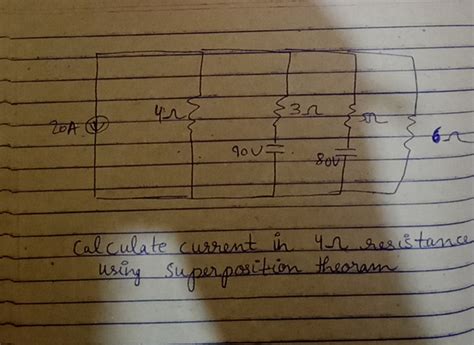 4Ω 3Ω 5Ω
20A 6Ω
90V 80V
Calculate current in 4Ω resistance
using superposition theoram